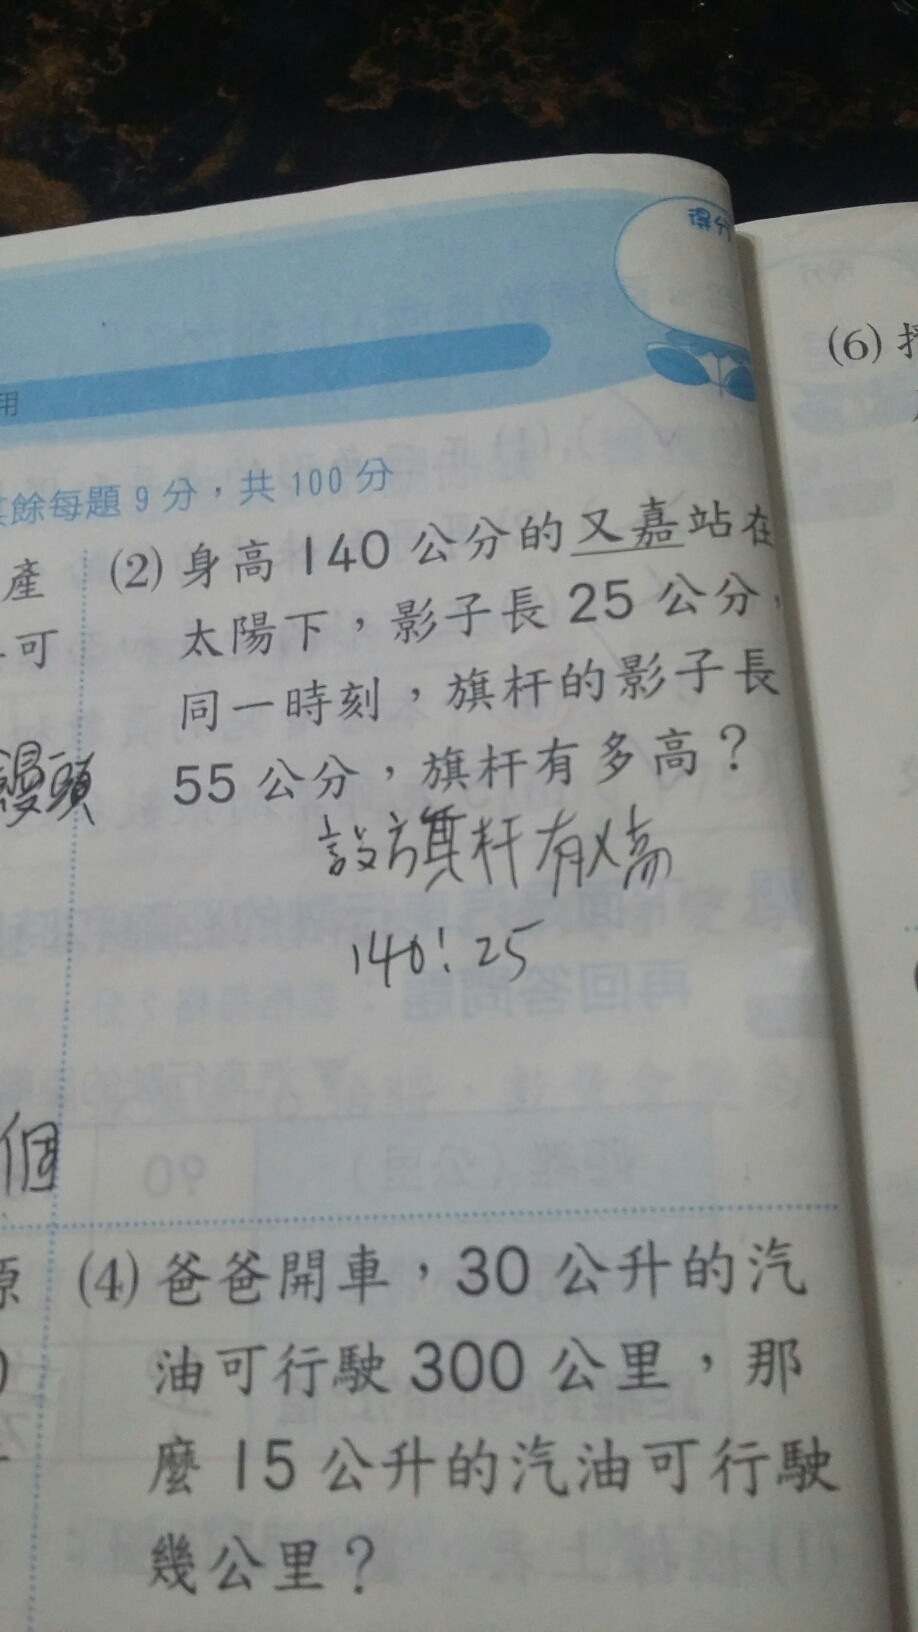 得分
用
其餘每題9分，共100分
產
可
饅頭
個
原
(2) 身高140公分的又嘉站在
太陽下，影子長25公分，
同一時刻，旗杆的影子長
55公分，旗杆有多高？
設旗杆有x高
140:25
(4) 爸爸開車，30公升的汽
油可行駛300公里，那
麼15公升的汽油可行駛
幾公里？
(6)